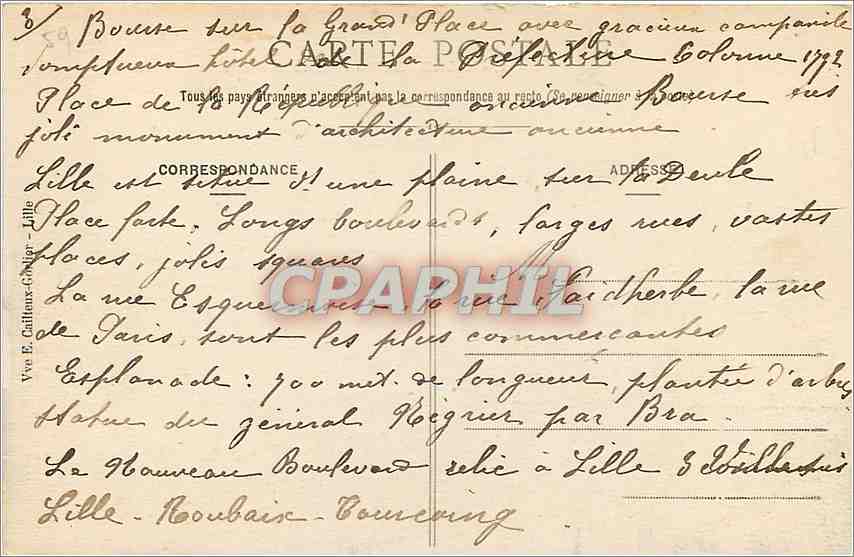 3/ Bourse sur la Grand'Place avec gracieux campanile
CARTE POSTALE
Somptueux hôtel de la Préfecture Colonne 1792
Tous les pays étrangers n'acceptent pas la correspondance au recto (Se renseigner à la Poste)
Place de la République ancienne Bourse très
joli monument d'architecture ancienne
CORRESPONDANCE
ADRESSE
Lille est situé ds une plaine sur la Deule
Place forte. Longs boulevards, larges rues, vastes
places, jolis squares
CPAPHIL
La rue Esquermoise la rue Faidherbe, la rue
de Paris, sont les plus commercantes
Esplanade : 700 mèt. de longueur, plantée d'arbres
Statue du général Négrier par Bra.
Le Nouveau Boulevard relie à Lille 3
Lille - Roubaix - Tourcoing
Vve E. Cailteux-Godier - Lille